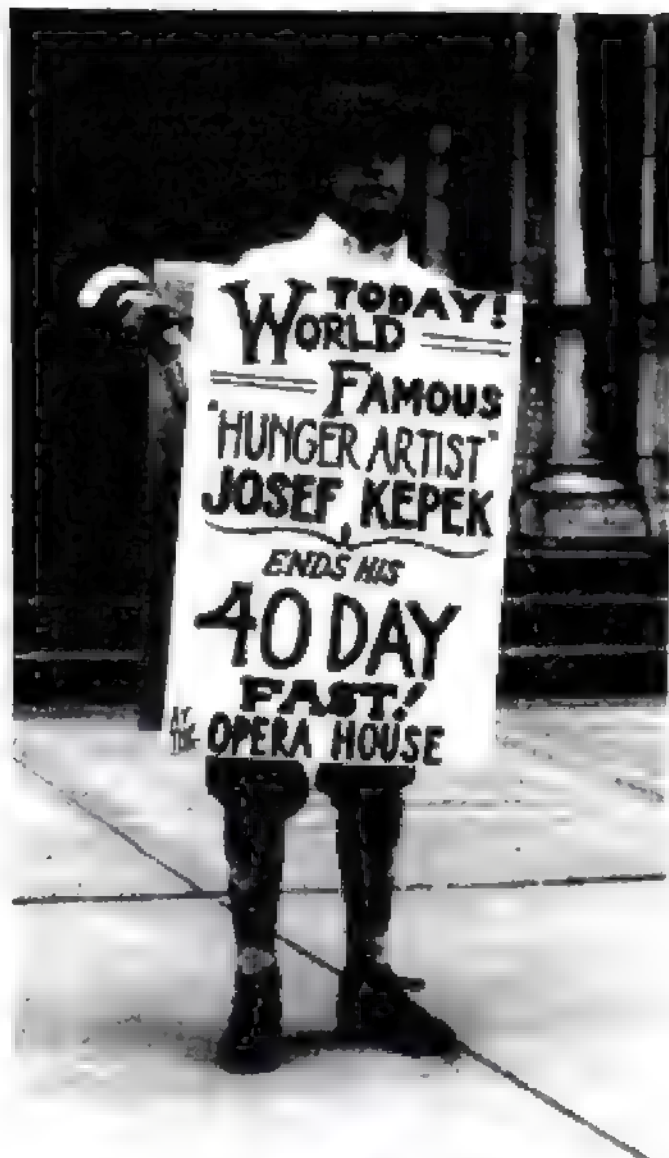 TODAY!
WORLD
FAMOUS
"HUNGER ARTIST"
JOSEF KEPEK
ENDS HIS
40 DAY
FAST!
AT THE OPERA HOUSE